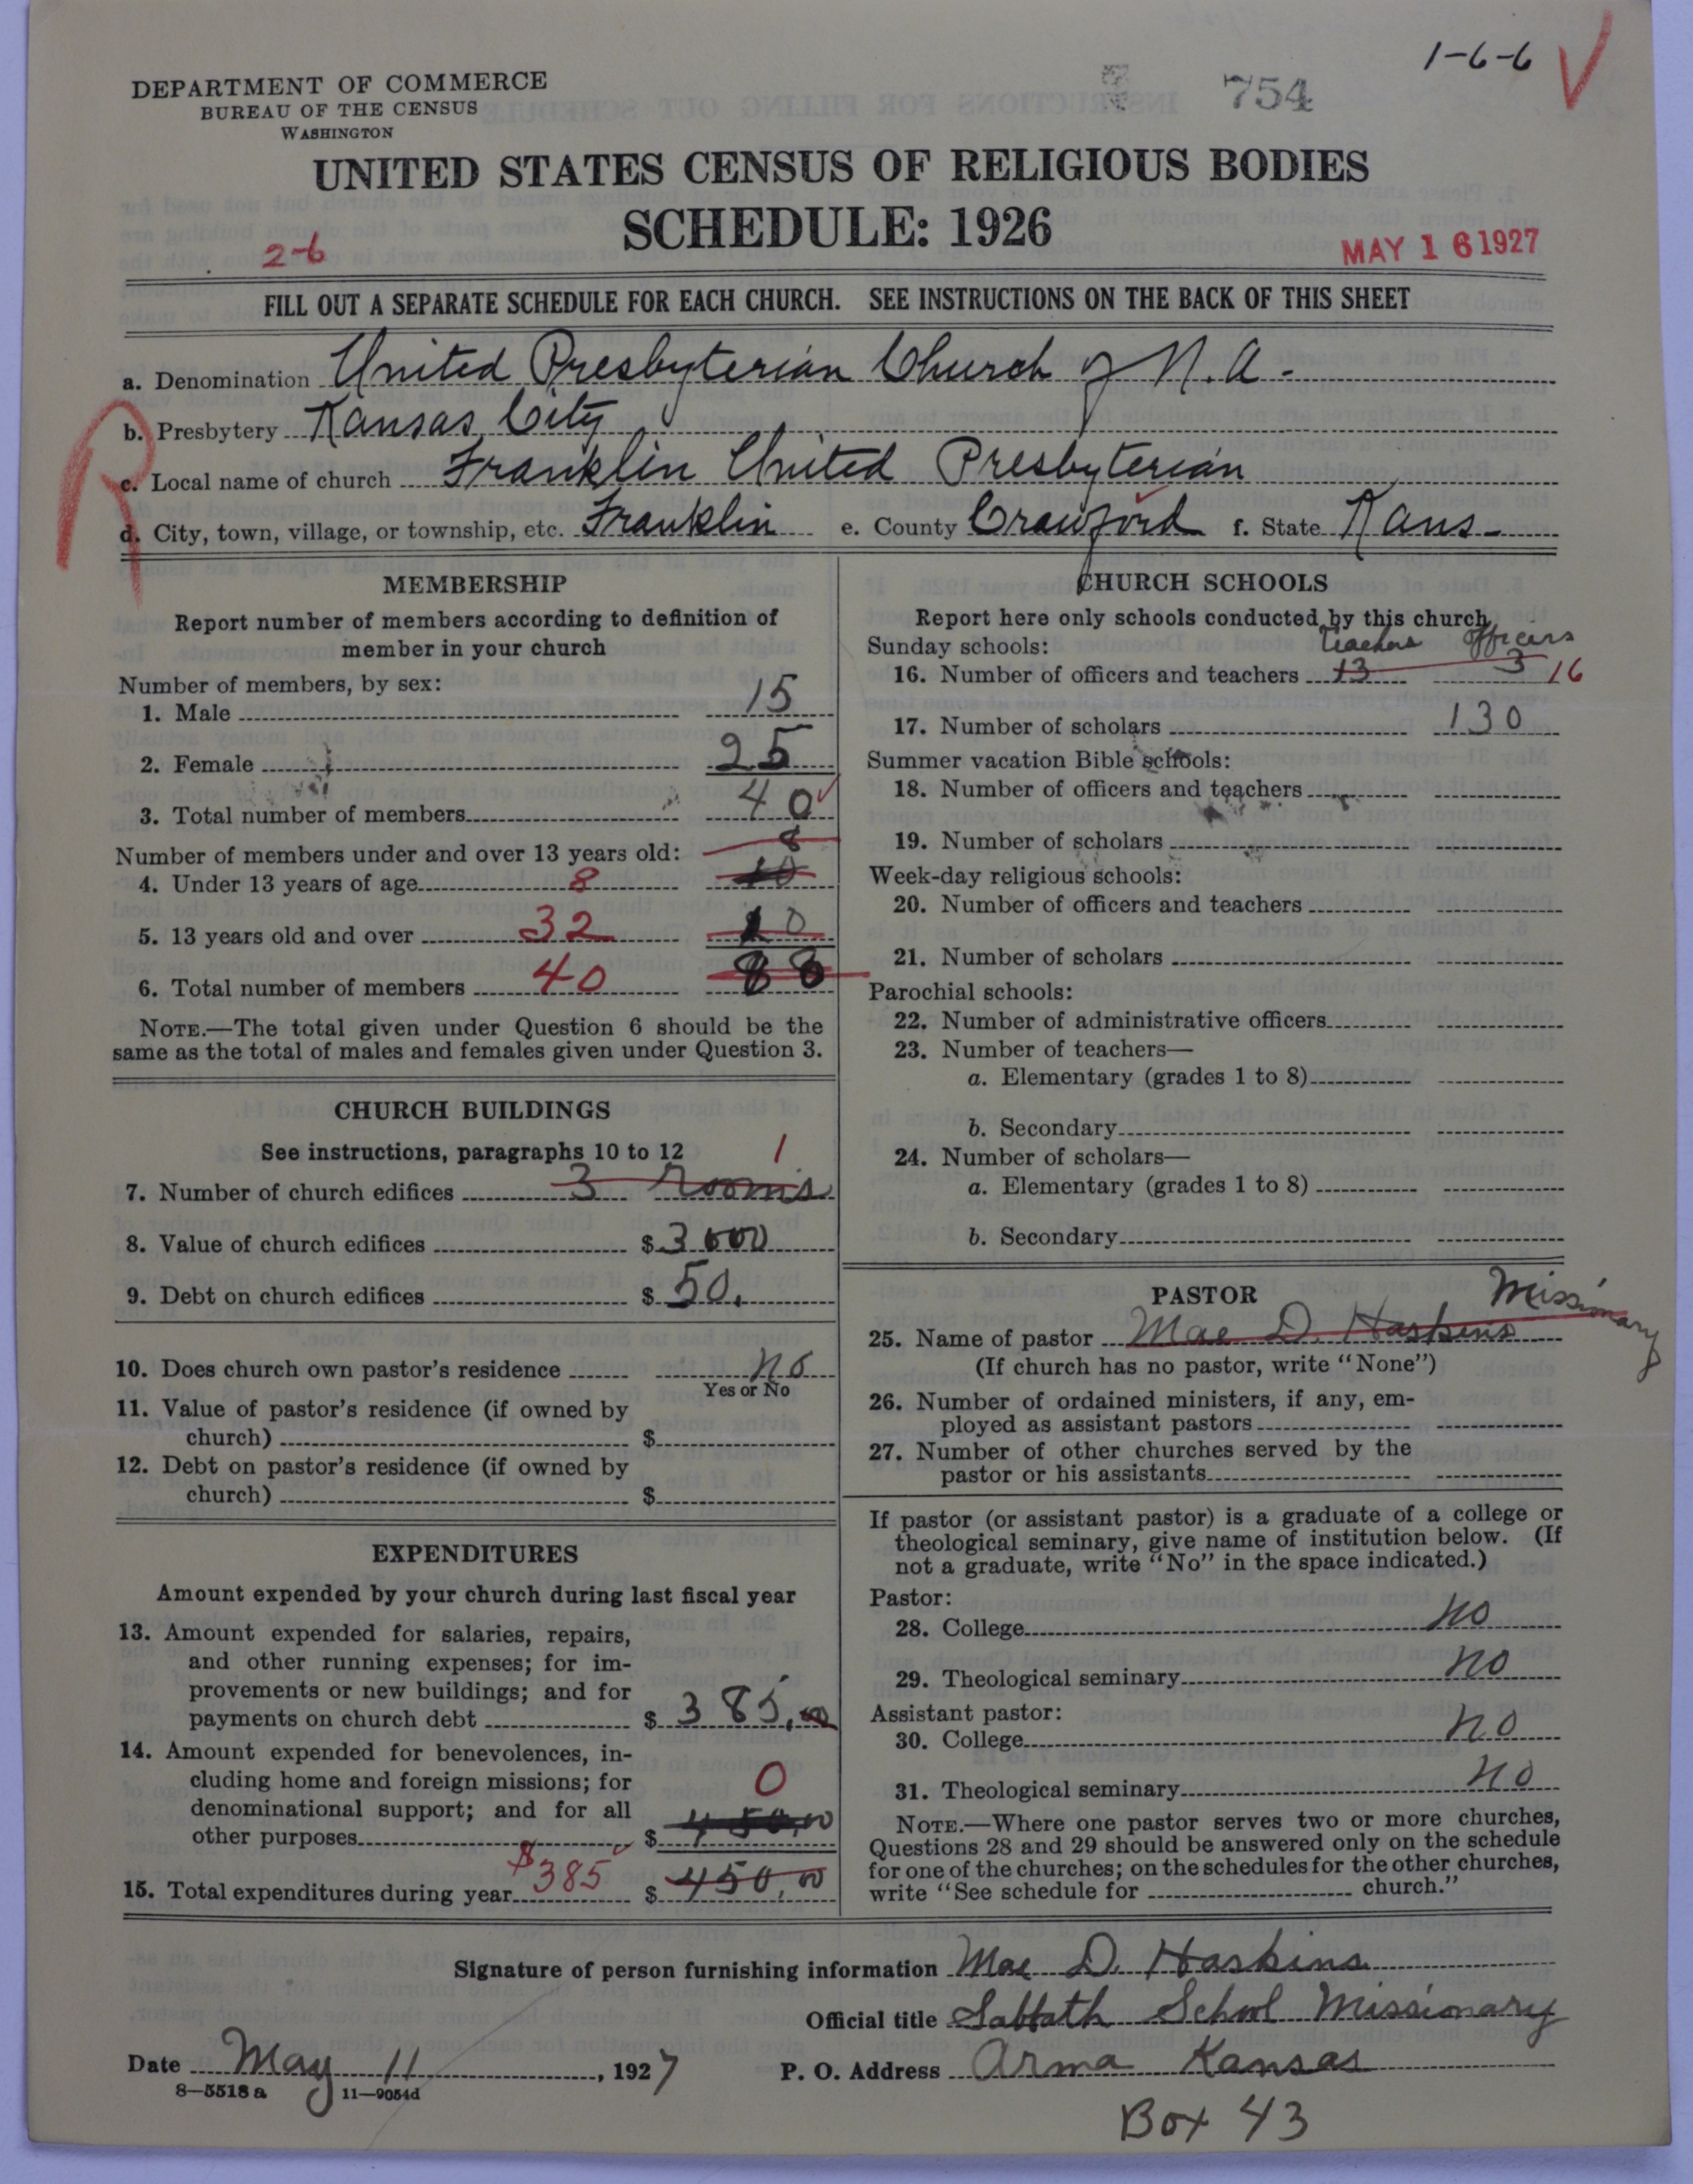 1-6-6
754
DEPARTMENT OF COMMERCE
BUREAU OF THE CENSUS
WASHINGTON
UNITED STATES CENSUS OF RELIGIOUS BODIES
SCHEDULE: 1926
2-6
MAY 16 1927
FILL OUT A SEPARATE SCHEDULE FOR EACH CHURCH. SEE INSTRUCTIONS ON THE BACK OF THIS SHEET
a. Denomination United Presbyterian Church of N.A.
b. Presbytery Kansas City
c. Local name of church Franklin United Presbyterian
d. City, town, village, or township, etc. Franklin e. County Crawford f. State Kans-
MEMBERSHIP
Report number of members according to definition of
member in your church
Number of members, by sex:
1. Male 15
2. Female 25
3. Total number of members 40
Number of members under and over 13 years old: 8
4. Under 13 years of age 8 10
5. 13 years old and over 32
6. Total number of members 40
NOTE.—The total given under Question 6 should be the
same as the total of males and females given under Question 3.
CHURCH BUILDINGS
See instructions, paragraphs 10 to 12 1
7. Number of church edifices 3 rooms
8. Value of church edifices $ 3000
9. Debt on church edifices $ 50.
10. Does church own pastor's residence no
Yes or No
11. Value of pastor's residence (if owned by
church) $
12. Debt on pastor's residence (if owned by
church) $
EXPENDITURES
Amount expended by your church during last fiscal year
13. Amount expended for salaries, repairs,
and other running expenses; for im-
provements or new buildings; and for
payments on church debt $ 385.00
14. Amount expended for benevolences, in-
cluding home and foreign missions; for
denominational support; and for all 0
other purposes $ 450.00
15. Total expenditures during year $385 $ 450.00
CHURCH SCHOOLS
Report here only schools conducted by this church
Sunday schools: Teachers Officers
16. Number of officers and teachers 13 3 16
17. Number of scholars 130
Summer vacation Bible schools:
18. Number of officers and teachers
19. Number of scholars
Week-day religious schools:
20. Number of officers and teachers
21. Number of scholars
Parochial schools:
22. Number of administrative officers
23. Number of teachers—
a. Elementary (grades 1 to 8)
b. Secondary
24. Number of scholars—
a. Elementary (grades 1 to 8)
b. Secondary
PASTOR
Missionary
25. Name of pastor Mae D. Haskins
(If church has no pastor, write "None")
26. Number of ordained ministers, if any, em-
ployed as assistant pastors
27. Number of other churches served by the
pastor or his assistants
If pastor (or assistant pastor) is a graduate of a college or
theological seminary, give name of institution below. (If
not a graduate, write "No" in the space indicated.)
Pastor:
28. College no
29. Theological seminary no
Assistant pastor:
30. College no
31. Theological seminary no
NOTE.—Where one pastor serves two or more churches,
Questions 28 and 29 should be answered only on the schedule
for one of the churches; on the schedules for the other churches,
write "See schedule for church."
Signature of person furnishing information Mae D. Haskins
Official title Sabbath School Missionary
Date May 11, 1927 P. O. Address Arma Kansas
8—5518 a 11—9054d
Box 43